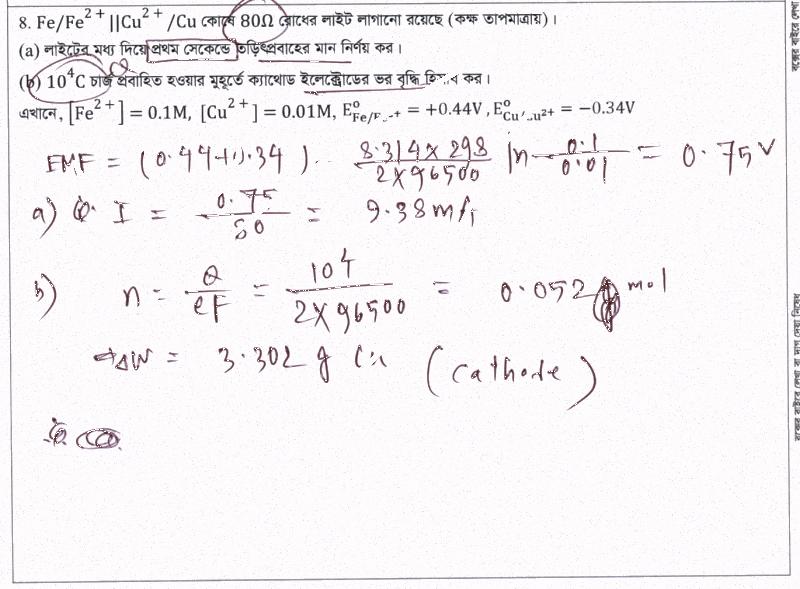 8. Fe/Fe²⁺||Cu²⁺/Cu কোষে 80Ω রোধের লাইট লাগানো রয়েছে (কক্ষ তাপমাত্রায়)।
(a) লাইটের মধ্য দিয়ে প্রথম সেকেন্ডে তড়িৎপ্রবাহের মান নির্ণয় কর।
(b) 10⁴C চার্জ প্রবাহিত হওয়ার মুহূর্তে ক্যাথোড ইলেক্ট্রোডের ভর বৃদ্ধি কর।
এখানে, [Fe²⁺] = 0.1M, [Cu²⁺] = 0.01M, E° = +0.44V, E° = −0.34V
EMF = (0.44+0.34) - 8.314×298/2×96500 ln 0.1/0.01 = 0.75 V
a) I = 0.75/80 = 9.38 mA
b) n = Q/eF = 10⁴/2×96500 = 0.052 mol
ΔW = 3.302 g Cu (cathode)
বক্সের বাইরে লেখা বা দাগ দেয়া নিষেধ
বক্সের বাইরে লেখা